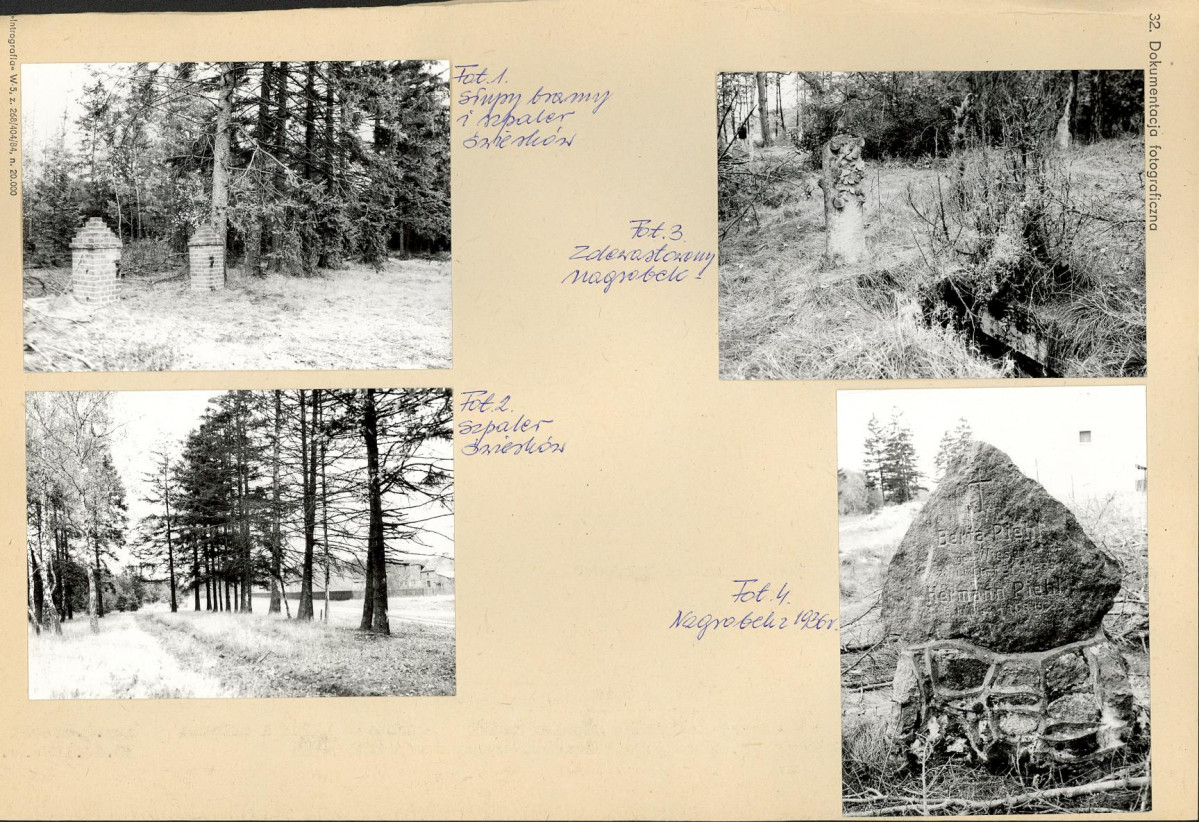 «Intrografia» W-5, z. 268/404/84, n. 20.000
32. Dokumentacja fotograficzna
Fot. 1.
Słupy bramy
i szpaler
świerków
Fot. 2.
Szpaler
świerków
Fot. 3.
Zdewastowany
nagrobek
Fot. 4.
Nagrobek z 1936r.
Piehl
Hermann Piehl